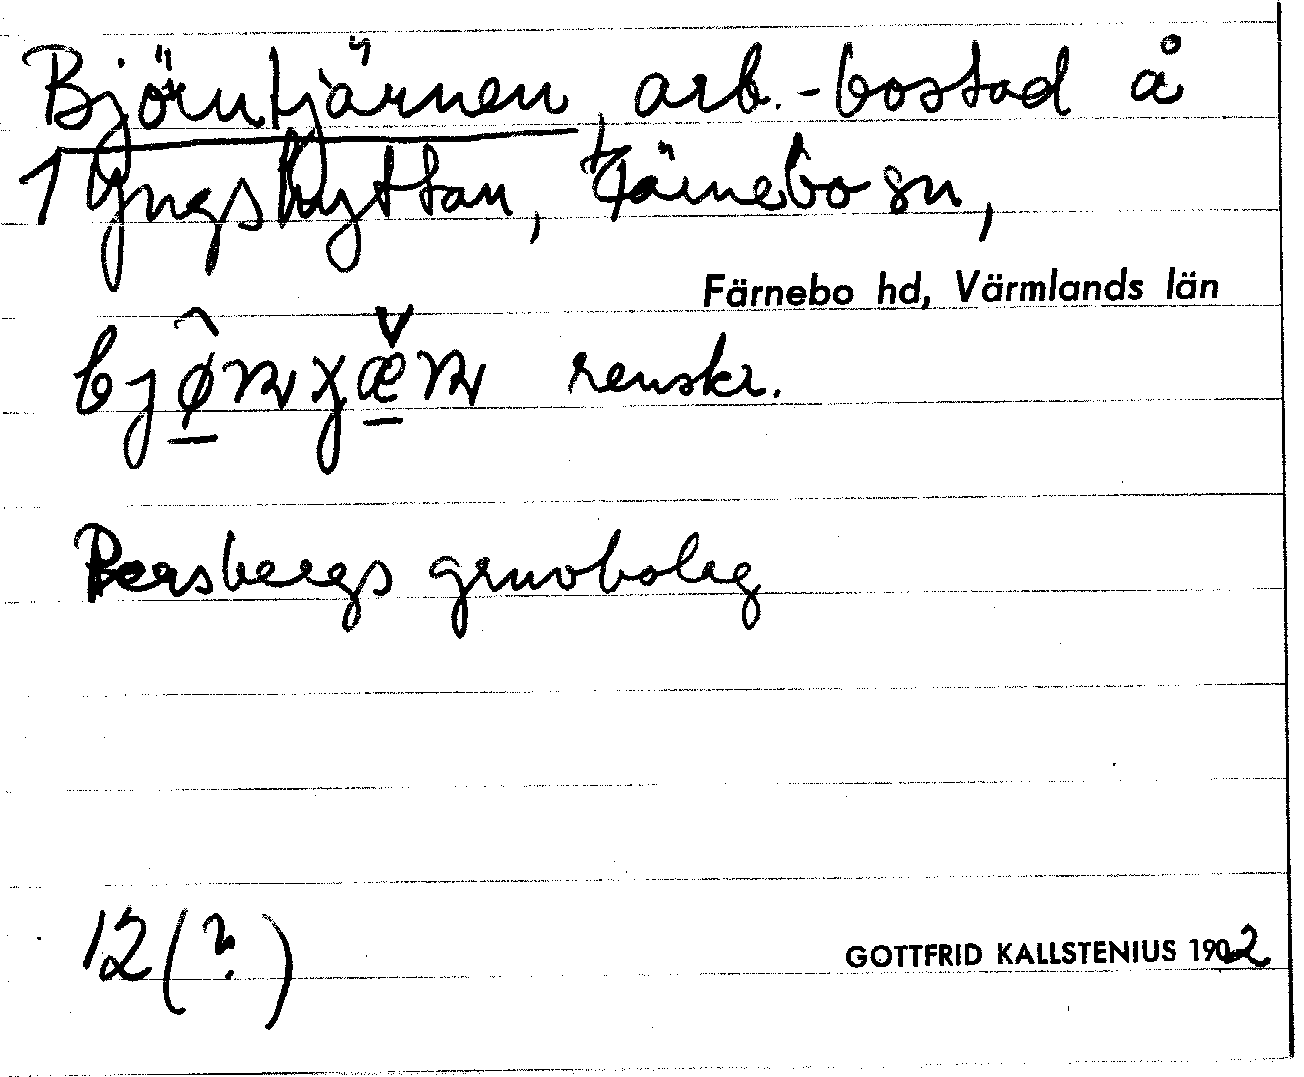 Björntjärnen, arb.-bostad å
1 Yngshyttan, Färnebo sn,
Färnebo hd, Värmlands län
renskr.
Persbergs gruvbolag
12 (?)
GOTTFRID KALLSTENIUS 1902